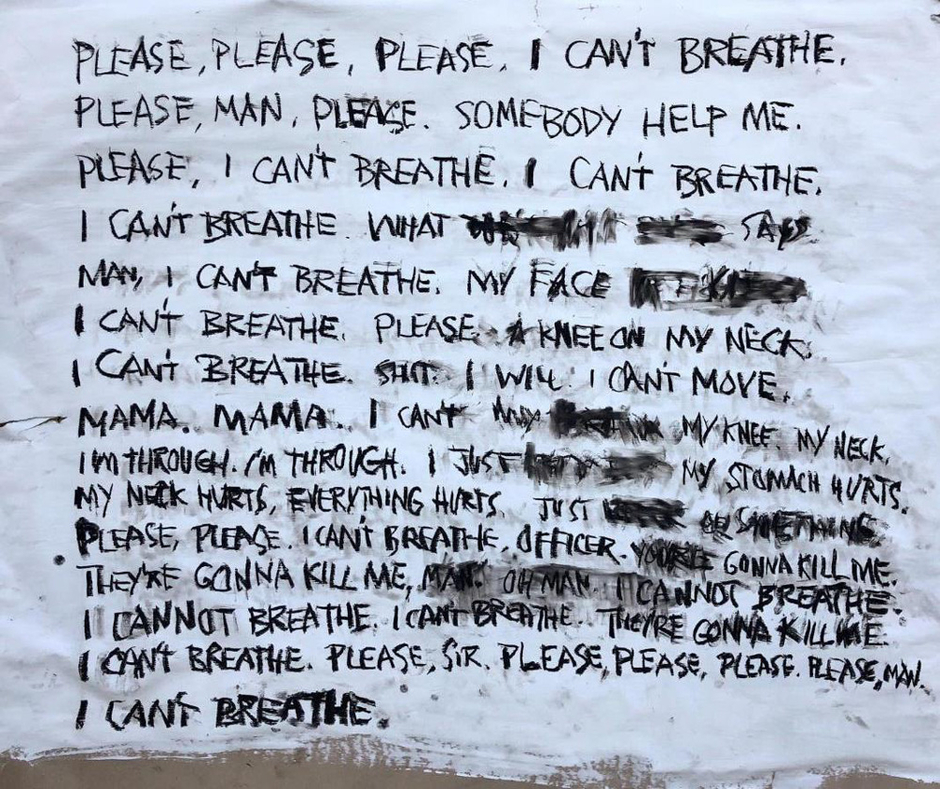 PLEASE, PLEASE, PLEASE, I CAN'T BREATHE.
PLEASE, MAN, PLEASE. SOMEBODY HELP ME.
PLEASE, I CAN'T BREATHE. I CAN'T BREATHE.
I CAN'T BREATHE. WHAT
MAN, I CAN'T BREATHE. MY FACE
I CAN'T BREATHE. PLEASE. A KNEE ON MY NECK.
I CAN'T BREATHE. SHIT. I WILL. I CAN'T MOVE.
MAMA. MAMA. I CAN'T MY KNEE. MY NECK.
I'M THROUGH. I'M THROUGH. I JUST MY STOMACH HURTS.
MY NECK HURTS, EVERYTHING HURTS. JUST OR SOMETHING
PLEASE, PLEASE. I CAN'T BREATHE, OFFICER. YOU'RE GONNA KILL ME.
THEY'RE GONNA KILL ME, MAN. OH MAN. I CANNOT BREATHE.
I CANNOT BREATHE. I CAN'T BREATHE. THEY'RE GONNA KILL ME.
I CAN'T BREATHE. PLEASE, SIR. PLEASE, PLEASE, PLEASE. PLEASE, MAN.
I CAN'T BREATHE.